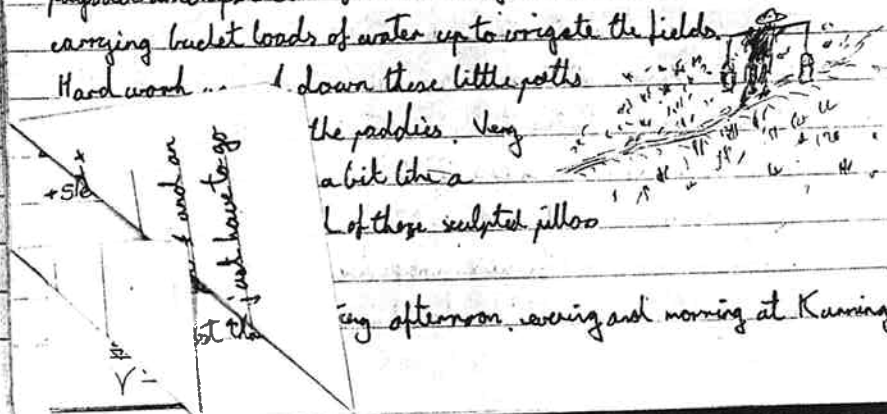 carrying bucket loads of water up to irrigate the fields.
Hard work ... down these little paths
the paddies. Very
a bit like a
of those sculpted pillos
afternoon, evening and morning at Kunming
and an
just have to go